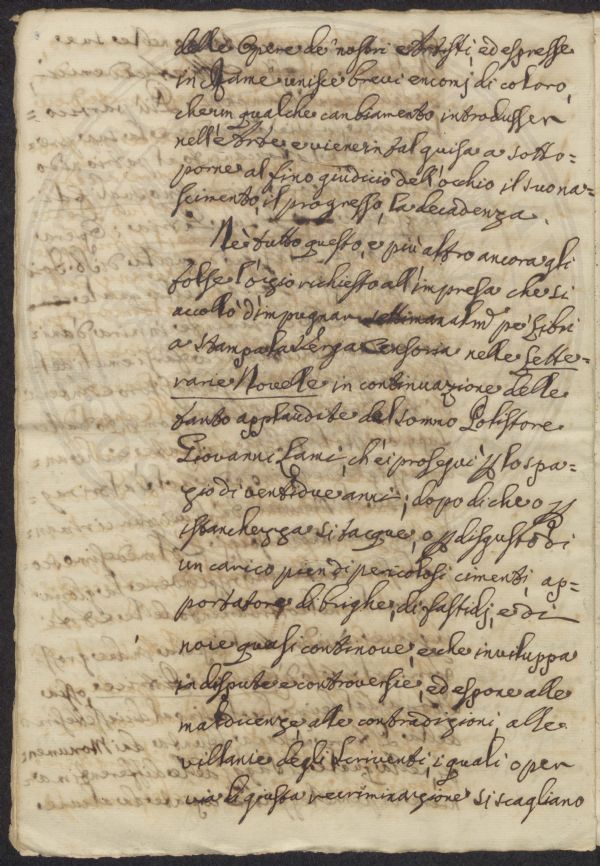 delle Opere de' nostri Artisti, ed espresse
in Rame unisce brevi encomj di coloro,
che in qualche cambiamento introdusser
nell'Arte, e viene in tal guisa a sotto=
porne al fino giudicio dell'occhio il suo na=
scimento, il progresso, la decadenza.
Nè tutto questo, e più altro ancora gli
tolse l'ozio richiesto all'impresa che si
accollò d'impugnar settimanalmte pe' Libri
a stampa la Verga Censoria nelle Lette=
rarie Novelle in continuazione delle
tanto applaudite del sommo Polistore
Giovanni Lami, ch'ei proseguì p lo spa=
zio di ventidue anni; dopo di che o p
istanchezza si tacque, o p disgusto di
un carico pien di pericolosi cimenti, ap=
portatore di brighe, di fastidj, e di
noie quasi continove, e che inviluppa
in dispute e controversie, ed espone alle
maldicenze, alle contradizioni, alle
villanie degli Scriventi, i quali o per
via di giusta recriminazione si scagliano